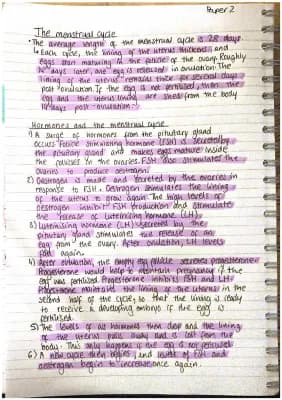 Paper 2
The menstrual cycle
• The average length of the menstrual cycle is 28 days.
↳ Each cycle, the lining of the uterus thickens and
eggs start maturing in the follicle of the ovary. Roughly
14 days later one egg is released in ovulation. The
lining of the uterus remains thick for several days
post ovulation. If the egg is not fertilised, then the
egg and the uterus lining are shed from the body
14 days post ovulation.
Hormones and the menstrual cycle
1) A surge of hormones from the pituitary gland
occurs. Follicle stimulating hormone (FSH) is secreted by
the pituitary gland and makes eggs mature inside
the ovaries. FSH also stimulates the
ovaries to produce oestrogen.
2) Oestrogen is made and secreted by the ovaries in
response to FSH. Oestrogen stimulates the lining
of the uterus to grow again. The high levels of
oestrogen inhibits FSH production and stimulate
the release of luteinizing hormone (LH).
3) Luteinizing hormone (LH) secreted by the
pituitary gland stimulates the release of an
egg from the ovary. After ovulation, LH levels
fall again.
4) After ovulation, the empty egg follicle secretes progesterone.
Progesterone would help to maintain pregnancy if the
egg was fertilised. Progesterone inhibits FSH and LH.
Progesterone maintains the lining of the uterus in the
second half of the cycle, so that the lining is ready
to receive a developing embryo if the egg is
fertilised.
5) The levels of all hormones then drop and the lining
of the uterus pulls away and is lost from the
body. This only happens if the egg is not fertilised.
6) A new cycle then begins, and levels of FSH and
oestrogen begin to increase once again.